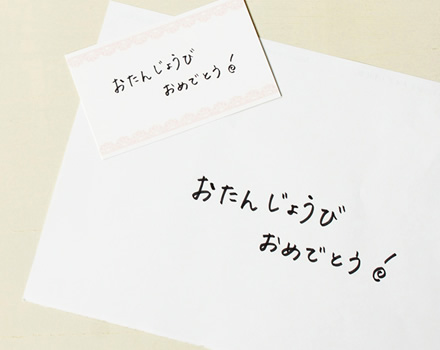 おたんじょうび
おめでとう!
おたんじょうび
おめでとう!